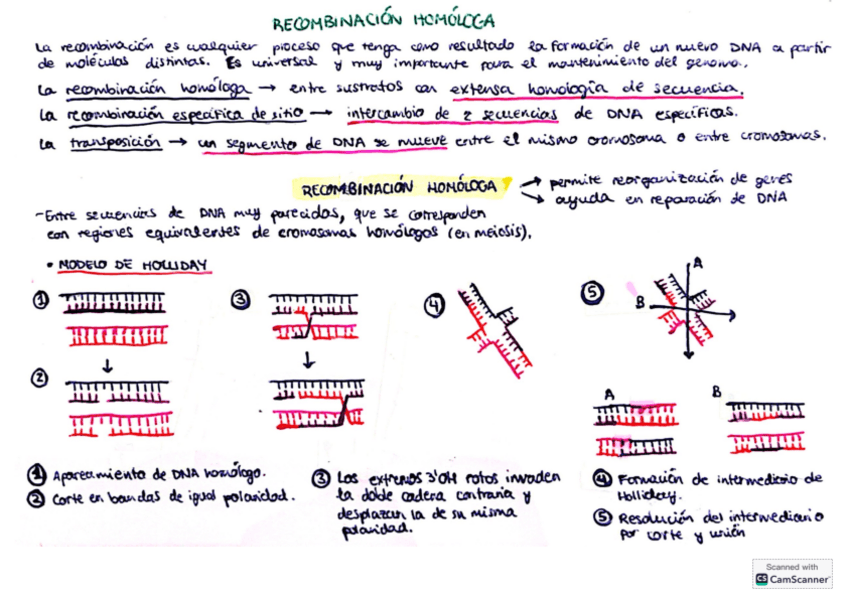 RECOMBINACIÓN HOMÓLOGA
La recombinación es cualquier proceso que tenga como resultado la formación de un nuevo DNA a partir
de moléculas distintas. Es universal y muy importante para el mantenimiento del genoma.
La recombinación homóloga → entre sustratos con extensa homología de secuencia.
La recombinación específica de sitio → intercambio de 2 secuencias de DNA específicas.
La transposición → un segmento de DNA se mueve entre el mismo cromosoma o entre cromosomas.
RECOMBINACIÓN HOMÓLOGA → permite reorganización de genes
→ ayuda en reparación de DNA
- Entre secuencias de DNA muy parecidas, que se corresponden
con regiones equivalentes de cromosomas homólogos (en meiosis).
• MODELO DE HOLLIDAY
1 3 4 5 A
B
2
A B
1 Apareamiento de DNA homólogo.
2 Corte en bandas de igual polaridad.
3 Los extremos 3'OH rotos invaden
la doble cadena contraria y
desplazan la de su misma
polaridad.
4 Formación de intermediario de
Holliday.
5 Resolución del intermediario
por corte y unión
Scanned with
CS CamScanner